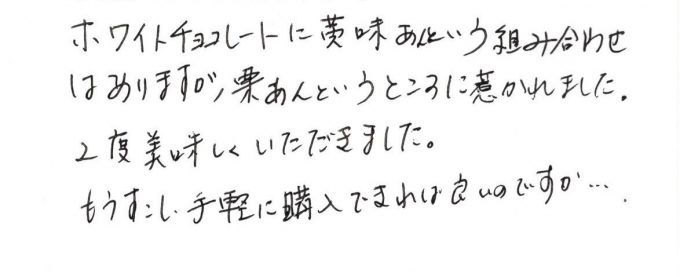 ホワイトチョコレートに黄味あんという組み合わせ
はありますが、栗あんというところに惹かれました。
2度美味しくいただきました。
もうすこし手軽に購入できれば良いのですが…。